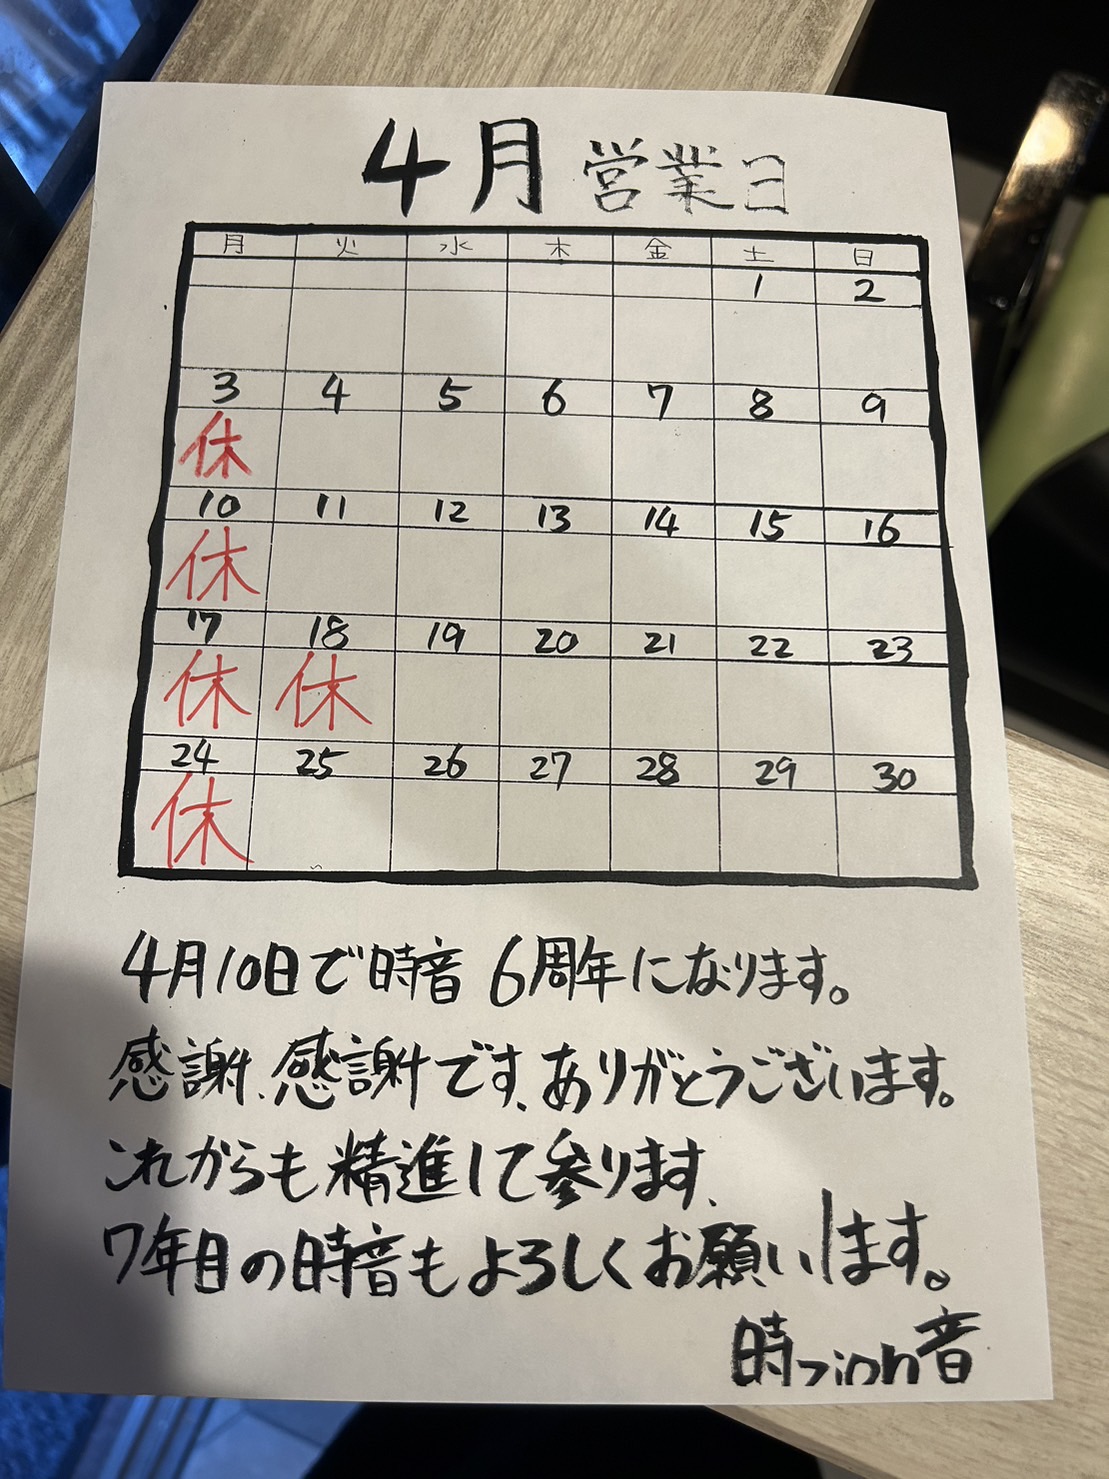 4月 営業日
月 火 水 木 金 土 日
1 2
3 4 5 6 7 8 9
休
10 11 12 13 14 15 16
休
17 18 19 20 21 22 23
休 休
24 25 26 27 28 29 30
休
4月10日で時音 6周年になります。
感謝、感謝です、ありがとうございます。
これからも精進して参ります、
7年目の時音もよろしくお願いします。
時zion音